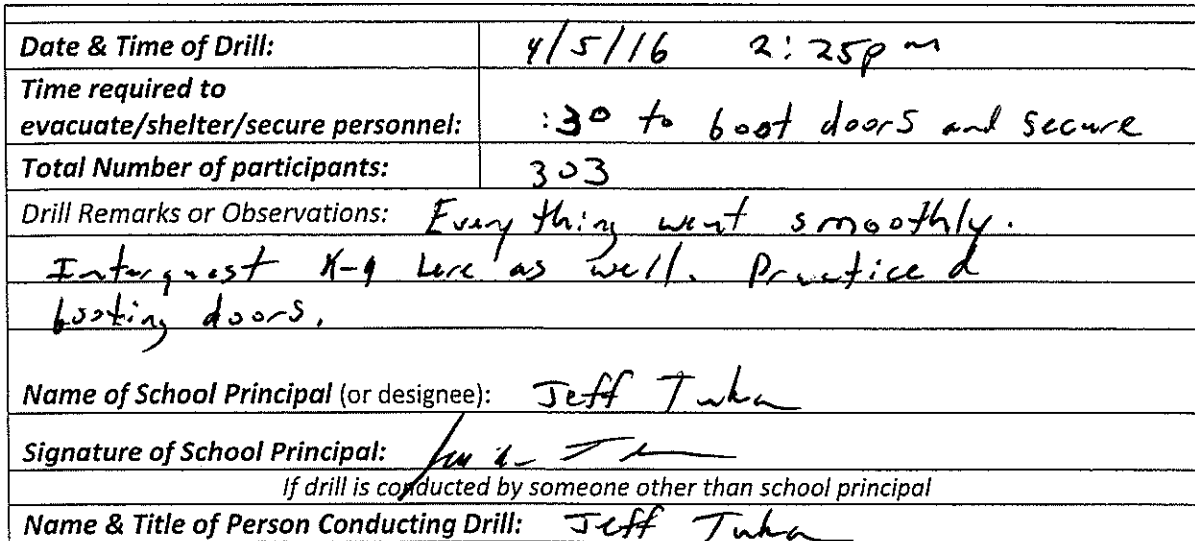 Date & Time of Drill: 4/5/16 2:25pm
Time required to
evacuate/shelter/secure personnel: :30 to boot doors and secure
Total Number of participants: 303
Drill Remarks or Observations: Everything went smoothly.
Interquest K-9 here as well. Practiced
booting doors.
Name of School Principal (or designee): Jeff
Signature of School Principal:
If drill is conducted by someone other than school principal
Name & Title of Person Conducting Drill: Jeff